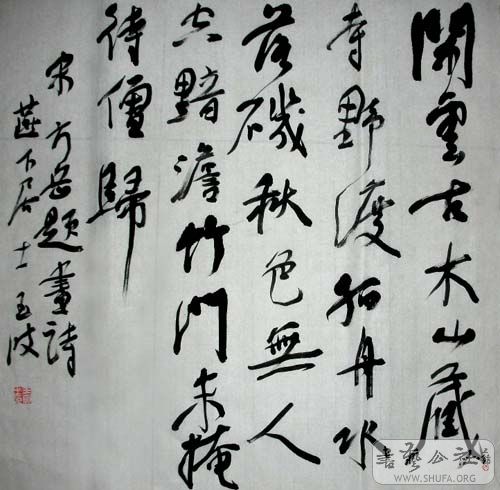 閑雲古木山藏
寺野渡孤舟水
落磯秋色無人
空黯澹竹門未掩
待僧歸
宋方岳題畫詩
燕下居士玉波
書藝公社
WWW.SHUFA.ORG